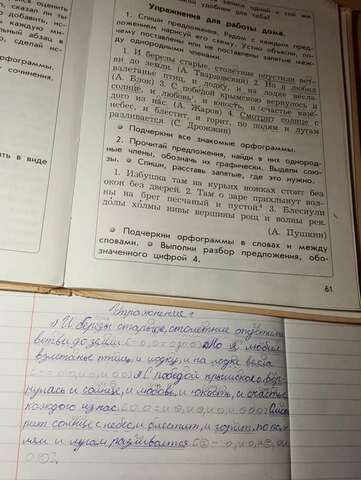 Упражнения для работы дома.
1. Спиши предложения. Рядом с каждым пред-
ложением нарисуй его схему. Устно объясни, по-
чему поставлены или не поставлены запятые меж-
ду однородными членами.
1. И берёзы старые, столетние опустили вет-
ви до земли. (А. Твардовский) 2. Но я любил
взлетанье птиц, и лодку, и на лодке вёсла.
(А. Блок) 3. С победой крымскою вернулось и
солнце, и любовь, и юность, и счастье каж-
дого из нас. (А. Жаров) 4. Смотрит солнце с
небес, и блестит, и горит, по полям и лугам
разливается. (С. Дрожжин)
Подчеркни все знакомые орфограммы.
2. Прочитай предложения, найди в них однород-
ные члены, обозначь их графически. Выдели сою-
зы. Спиши, расставь запятые, где это нужно.
1. Избушка там на курьих ножках стоит без
окон без дверей. 2. Там о заре прихлынут вол-
ны на брег песчаный и пустой. 3. Блеснули
долы холмы нивы вершины рощ и волны рек.
(А. Пушкин)
Подчеркни орфограммы в словах и между
словами. Выполни разбор предложения, обо-
значенного цифрой 4.
61
орфограммы.
сочинения.
ть в виде
Упражнение 1
1) И берёзы старые, столетние опустили
ветви до земли. 2) Но я любил
взлетанье птиц, и лодку, и на лодке вёсла
3) С победой крымскою вер-
нулось и солнце, и любовь, и юность, и счастье
каждого из нас.
рит солнце с небес, и блестит, и горит, по по-
лям и лугам разливается.